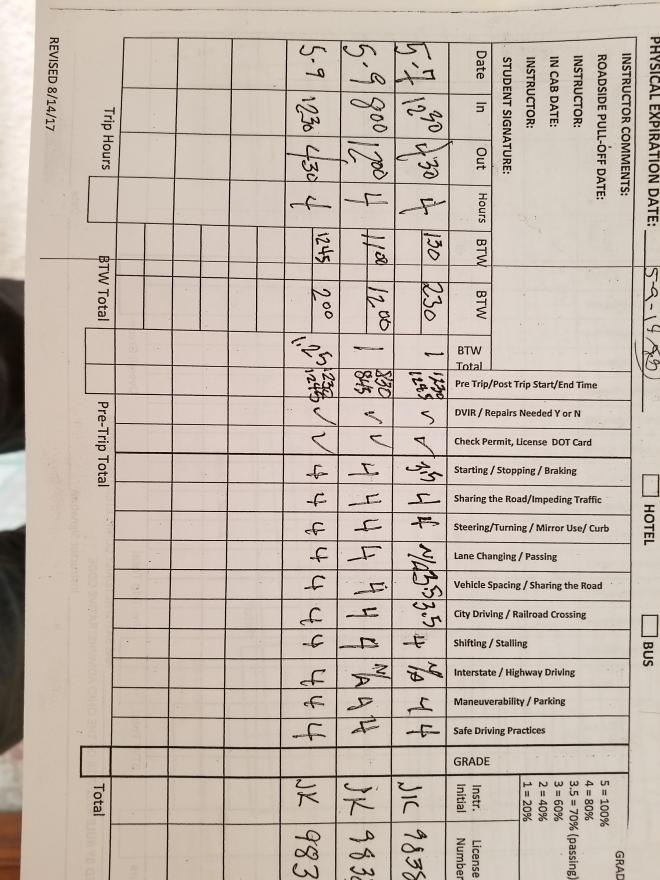 PHYSICAL EXPIRATION DATE:
HOTEL
BUS
INSTRUCTOR COMMENTS:
ROADSIDE PULL-OFF DATE:
INSTRUCTOR:
IN CAB DATE:
INSTRUCTOR:
STUDENT SIGNATURE:
GRAD
5 = 100%
4 = 80%
3.5 = 70% (passing)
3 = 60%
2 = 40%
1 = 20%
Date In Out Hours BTW BTW BTW Total
Pre Trip/Post Trip Start/End Time
DVIR / Repairs Needed Y or N
Check Permit, License DOT Card
Starting / Stopping / Braking
Sharing the Road/Impeding Traffic
Steering/Turning / Mirror Use/ Curb
Lane Changing / Passing
Vehicle Spacing / Sharing the Road
City Driving / Railroad Crossing
Shifting / Stalling
Interstate / Highway Driving
Maneuverability / Parking
Safe Driving Practices
GRADE
Instr. Initial
License Number
5-7 1230 430 4 130 230 1 1230 1245 ✓ ✓ 3.5 4 4 N/A 3.5 3.5 4 N/A 4 4 JK 983
5-9 800 1200 4 1100 1200 1 830 845 ✓ ✓ 4 4 4 4 4 4 4 N/A 4 4 JK 983
5-9 1230 430 4 1245 200 1.25 1230 1245 ✓ ✓ 4 4 4 4 4 4 4 4 4 4 JK 983
Trip Hours
BTW Total
Pre-Trip Total
Total
REVISED 8/14/17